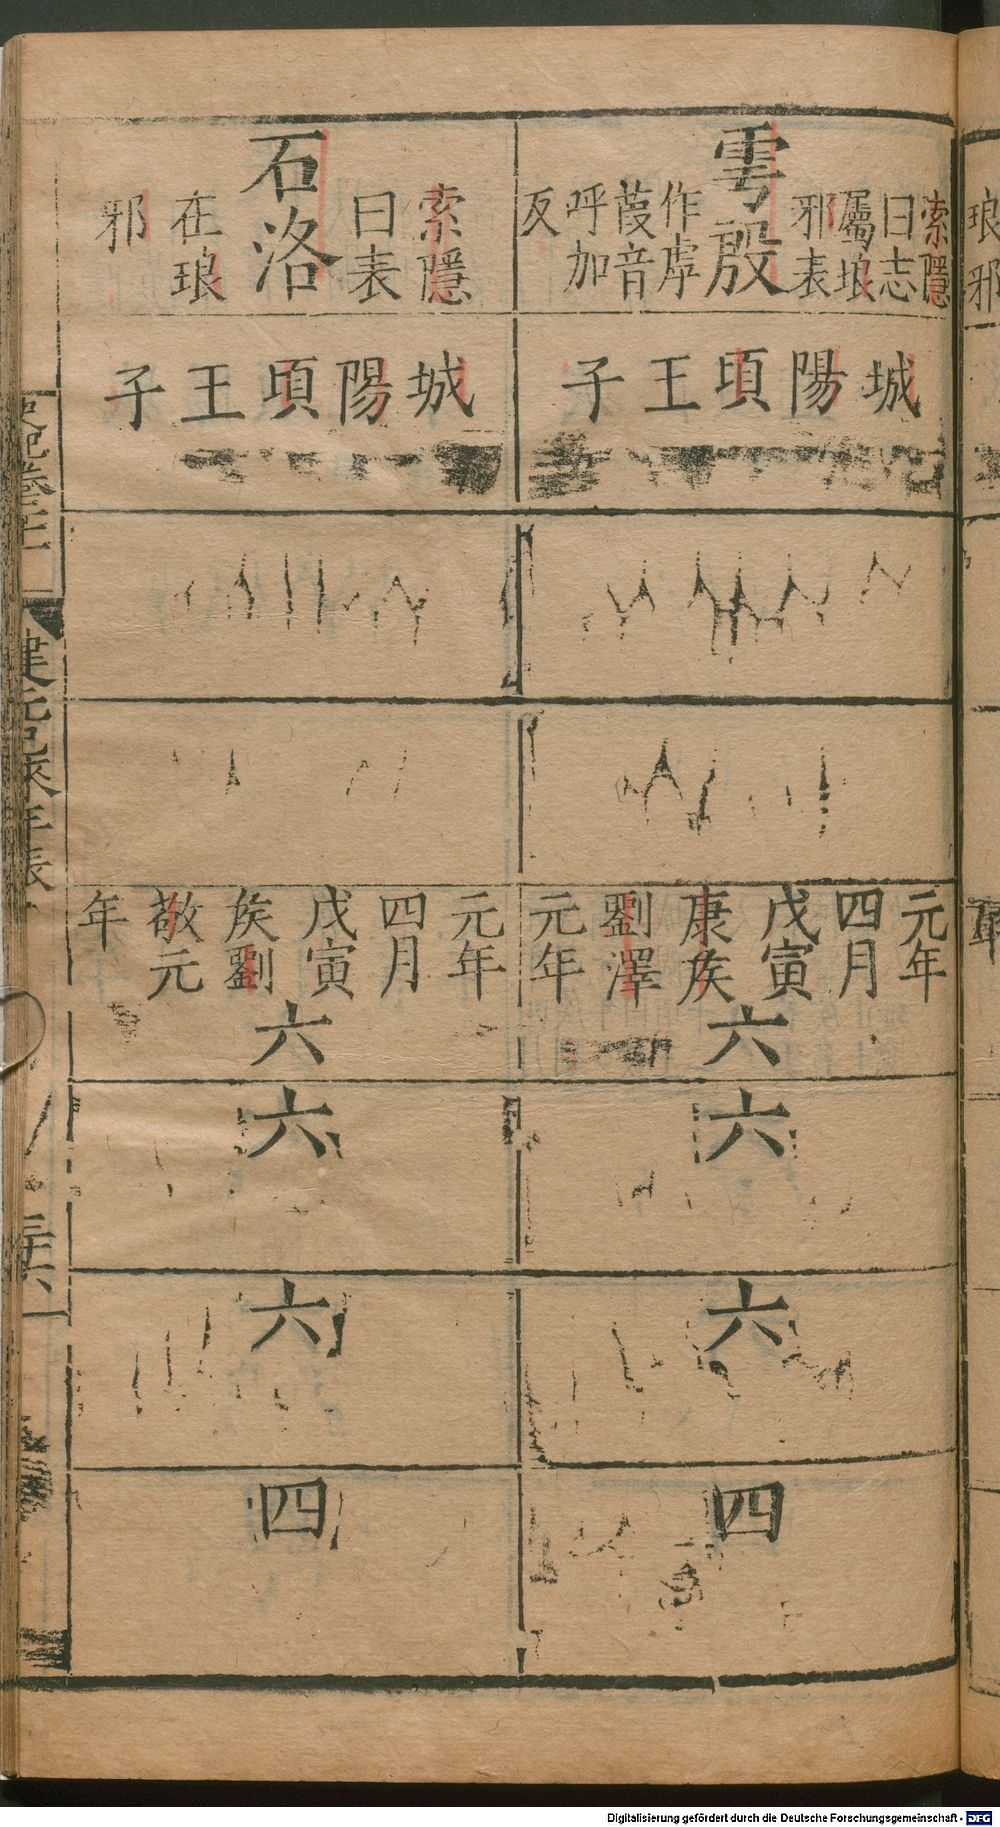 雩殷
索隱
曰志
屬琅
邪表
作虖
葭音
呼加
反
城陽頃王子
元年
四月
戊寅
康侯
劉澤
元年
六
六
六
四
石洛
索隱
曰表
在琅
邪
城陽頃王子
元年
四月
戊寅
侯劉
敬元
年
六
六
六
四
琅邪
年
Digitalisierung gefördert durch die Deutsche Forschungsgemeinschaft - DFG